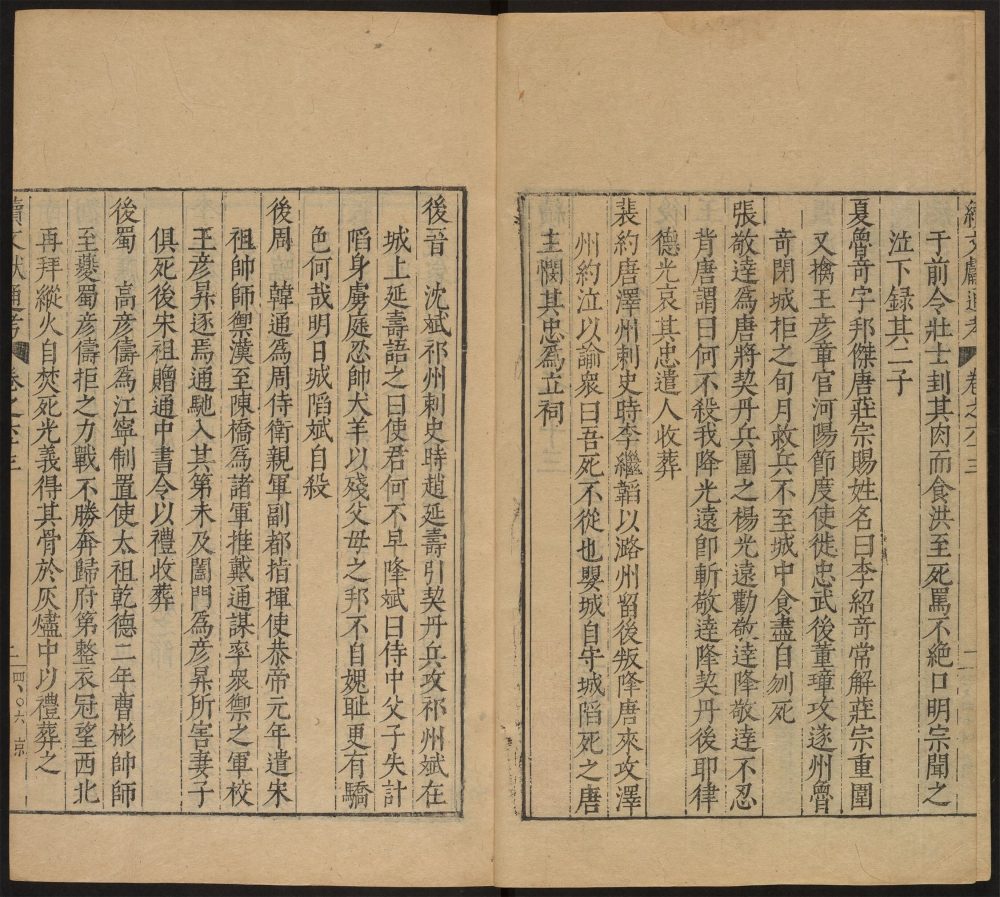 續文獻通考 卷之六十三
于前令壯士刲其肉而食洪至死罵不絶口明宗聞之
泣下録其二子
夏魯奇字邦傑唐莊宗賜姓名曰李紹奇常解莊宗重圍
又擒王彦章官河陽節度使徙忠武後董璋攻遂州魯
奇閉城拒之旬月救兵不至城中食盡自刎死
張敬達爲唐將契丹兵圍之楊光遠勸敬達降敬達不忍
背唐謂曰何不殺我降光遠卽斬敬達降契丹後耶律
德光哀其忠遣人收葬
裴約唐澤州刺史時李繼韜以潞州留後叛降唐來攻澤
州約泣以諭衆曰吾死不從也嬰城自守城陷死之唐
主憫其忠爲立祠
後晉 沈斌祁州刺史時趙延壽引契丹兵攻祁州斌在
城上延壽語之曰使君何不早降斌曰侍中父子失計
陷身虜庭忍帥犬羊以殘父母之邦不自媿耻更有驕
色何哉明日城陷斌自殺
後周 韓通爲周侍衛親軍副都指揮使恭帝元年遣宋
祖帥師禦漢至陳橋爲諸軍推戴通謀率衆禦之軍校
王彦昇逐焉通馳入其第未及闔門爲彦昇所害妻子
俱死後宋祖贈通中書令以禮收葬
後蜀 高彦儔爲江寧制置使太祖乾德二年曹彬帥師
至夔蜀彦儔拒之力戰不勝奔歸府第整衣冠望西北
再拜縱火自焚死光義得其骨於灰燼中以禮葬之
續文獻通考 卷之六十三
二 四〇六 京